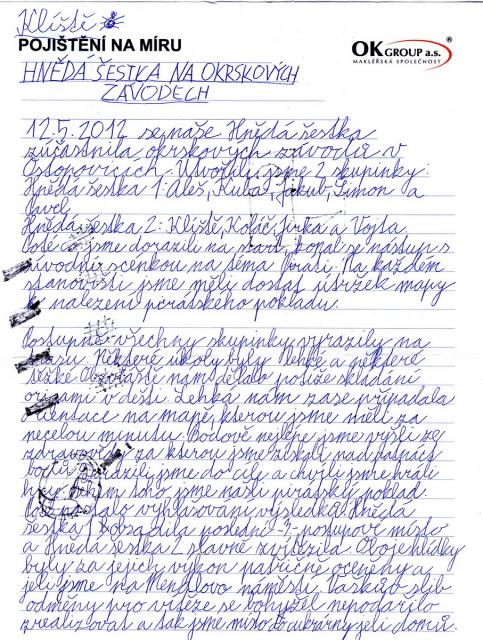 Klíště
POJIŠTĚNÍ NA MÍRU
OK GROUP a.s.
MAKLÉŘSKÁ SPOLEČNOST
HNĚDÁ ŠESTKA NA OKRSKOVÝCH
ZÁVODECH
12.5. 2012 se naše Hnědá šestka
zúčastnila okrskových závodů v
Ostopovicích. Utvořili jsme 2 skupinky:
Hnědá šestka 1: Aleš, Kuba, Jakub, Šimon a
Pavel
Hnědá šestka 2: Klíště, Koláč, Jirka a Vojta.
Poté co jsme dorazili na start, konal se nástup s
úvodní scénkou na téma Piráti. Na každém
stanovišti jsme měli dostat ústřižek mapy
k nalezení pirátského pokladu.
Postupně všechny skupinky vyrazily na
trasu. Některé úkoly byly lehké a některé
těžké. Obzvláště nám dělalo potíže skládání
origami v dešti. Lehká nám zase připadala
orientace na mapě, kterou jsme měli za
necelou minutu. Bodově nejlépe jsme vyšli ze
zdravovědy za kterou jsme získali nad patnáct
bodů. Dorazili jsme do cíle a chvíli jsme hráli
hry. Během toho jsme našli pirátský poklad.
Poté nastalo vyhlašování výsledků. Hnědá
šestka 1 obsadila poslední -3- postupové místo
a Hnědá šestka 2 slavně zvítězila. Oboje hlídky
byly za jejich výkon patřičně oceněny a
jeli jsme na Mendlovo náměstí. Vaškův slib
odměny pro vítěze se bohužel nepodařilo
zrealizovat a tak jsme místo do cukrárny jeli domů.